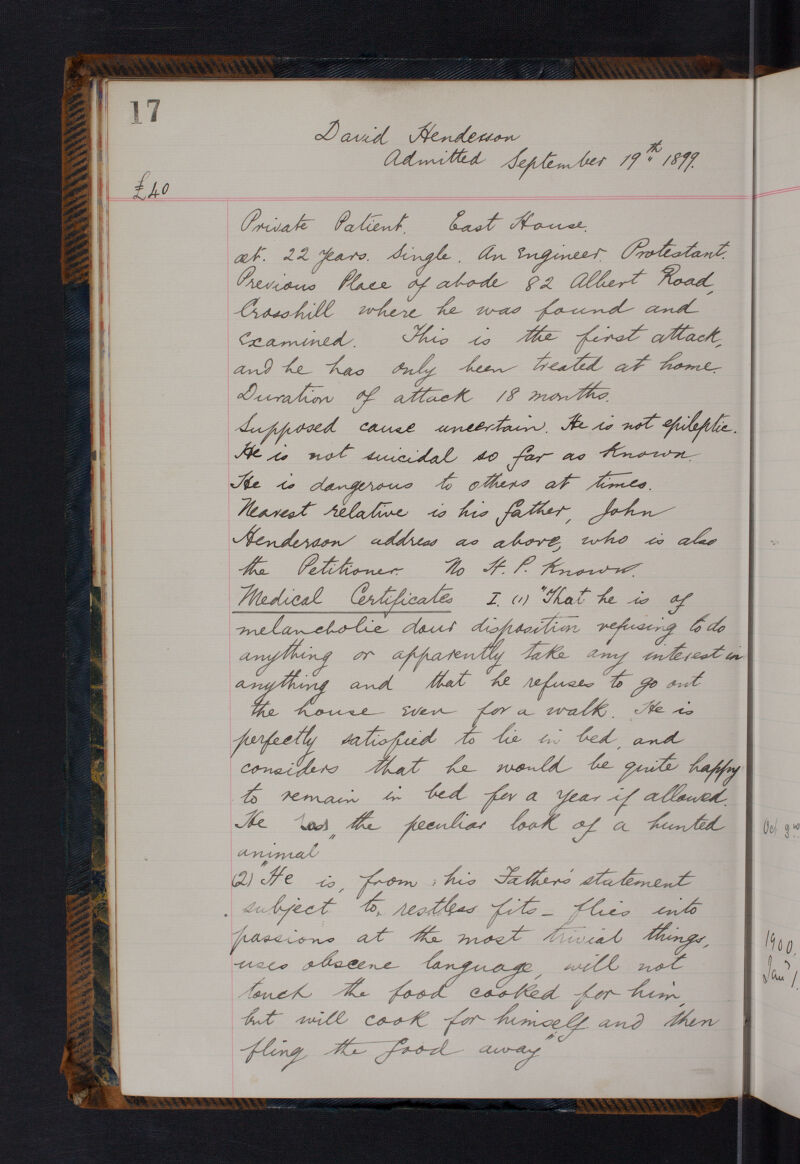 17
David Henderson
Admitted September 19th 1899.
£40
Private Patient. East House.
æt. 22 years. Single. An Engineer. Protestant.
Previous Place of abode 82 Albert Road,
Crosshill where he was found and
Examined. This is the first attack,
and he has only been treated at home.
Duration of attack 18 months.
Supposed cause uncertain. He is not epileptic.
He is not suicidal so far as Known.
He is dangerous to others at times.
Nearest relative is his father, John
Henderson address as above, who is also
the Petitioner. No H. P. Known.
Medical Certificates I. (1) "That he is of
melancholic dour disposition refusing to do
anything or apparently take any interest in
anything and that he refuses to go out
the house even for a walk. He is
perfectly satisfied to lie in bed, and
considers that he would be quite happy
to remain in bed for a year if allowed.
He has the peculiar look of a hunted
animal"
(2) "He is, from his Father's statement
subject to, restless fits - flies into
passions at the most trivial things,
uses obscene language, will not
touch the food cooked for him,
but will cook for himself and then
fling the food away"
Oct 9
1900.
Jan 1.